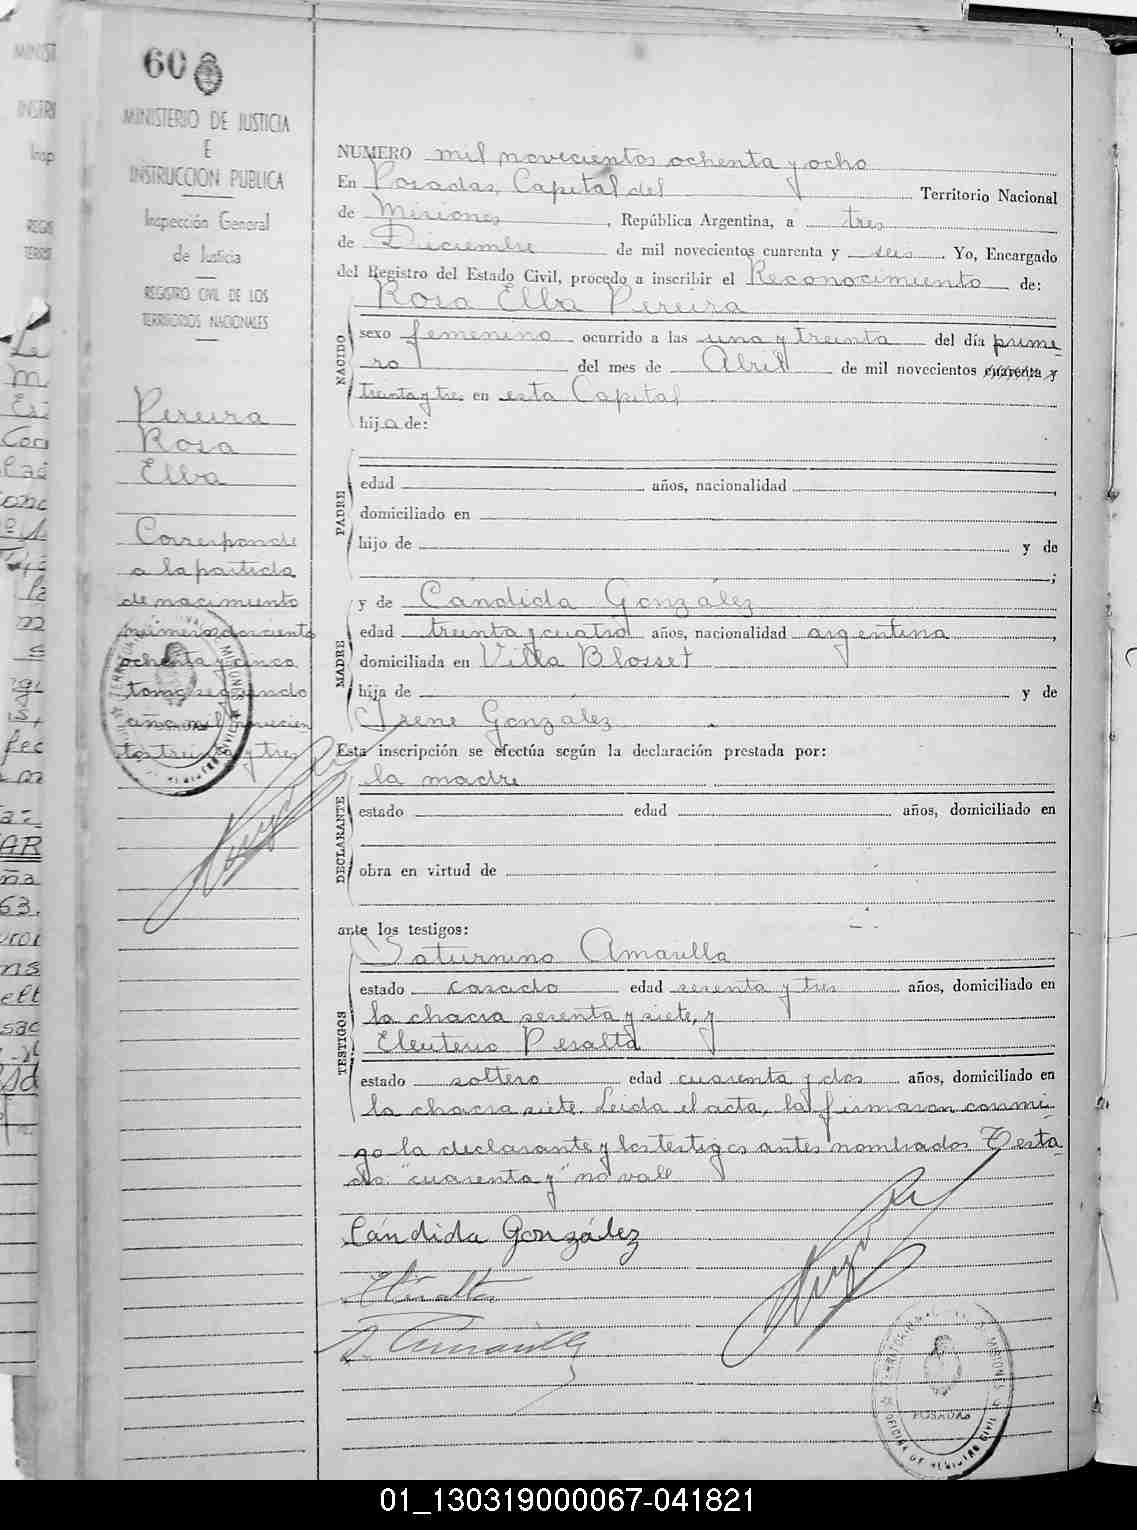 60
MINISTERIO DE JUSTICIA
E
INSTRUCCION PUBLICA
Inspección General
de Justicia
REGISTRO CIVIL DE LOS
TERRITORIOS NACIONALES
Pereira
Rosa
Elba
Corresponde
a la partida
de nacimiento
número doscientos
ochenta y cinco
tomo segundo
año mil novecien
tos treinta y tres
NUMERO mil novecientos ochenta y ocho
En Posadas, Capital del Territorio Nacional
de Misiones, República Argentina, a tres
de Diciembre de mil novecientos cuarenta y seis Yo, Encargado
del Registro del Estado Civil, procedo a inscribir el Reconocimiento de:
Rosa Elba Pereira
NACIDO
sexo femenino ocurrido a las una y treinta del día prime
ro del mes de Abril de mil novecientos cuarenta y
treinta y tres en esta Capital
hija de:
PADRE
edad años, nacionalidad
domiciliado en
hijo de y de
;
y de Cándida González
MADRE
edad treinta y cuatro años, nacionalidad argentina,
domiciliada en Villa Blosset
hija de y de
Irene González
Esta inscripción se efectúa según la declaración prestada por:
la madre
DECLARANTE
estado edad años, domiciliado en
obra en virtud de
ante los testigos:
Saturnino Amarilla
TESTIGOS
estado casado edad sesenta y tres años, domiciliado en
la chacra sesenta y siete, y
Eleuterio Peralta
estado soltero edad cuarenta y dos años, domiciliado en
la chacra siete. Leida el acta, la firmaron conmi
go la declarante y los testigos antes nombrados Testa
do: "cuarenta y" no vale
Cándida González
E Peralta
S. Amarilla
POSADAS
01_130319000067-041821